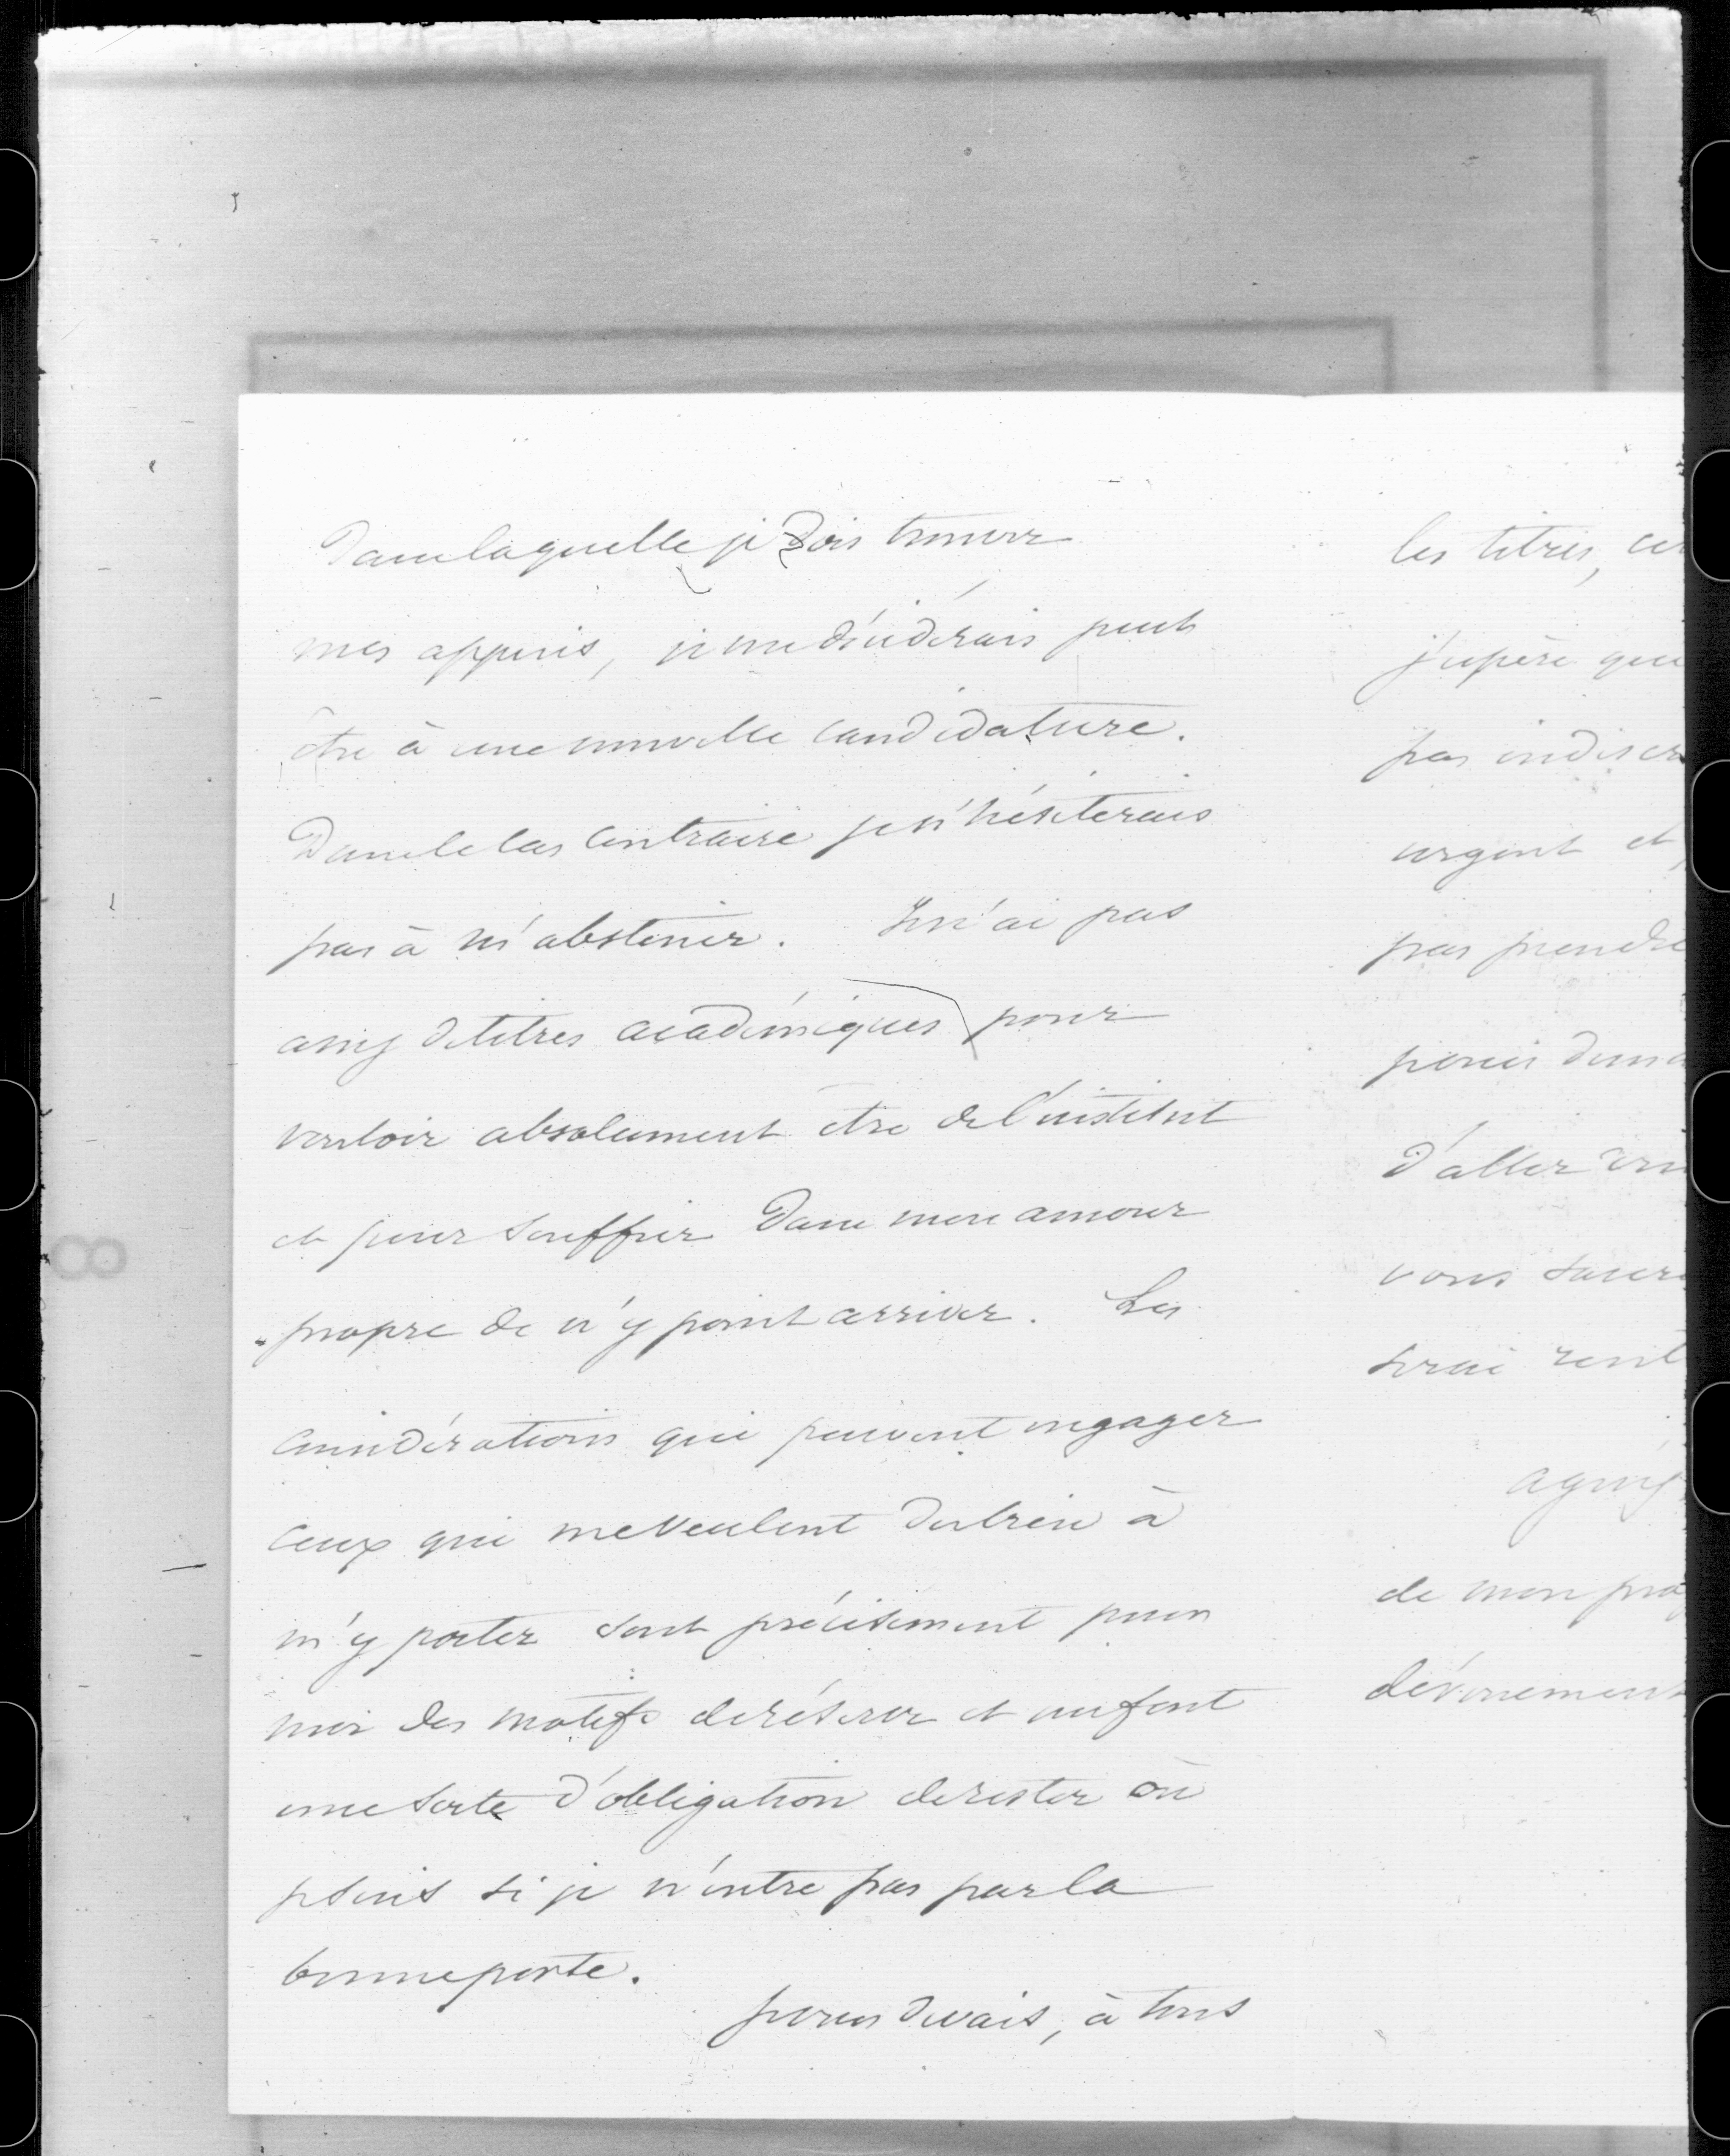 Dans laquelle je dois trouver
mes appuis, je me déciderais peut
être à une nouvelle candidature.
Dans le cas contraire je n'hésiterais
pas à m'abstenir. Je n'ai pas
assez de titres académiques pour
vouloir absolument être de l'institut
et pour souffrir dans mon amour
propre de n'y point arriver. Les
considérations qui peuvent engager
ceux qui me veulent du bien à
m'y porter sont précisément pour
moi des motifs de réserve et me font
une sorte d'obligation de rester où
je suis si je n'entre pas par la
bonne porte.
je vous devais, à tous
les titres, ces
j'espère que
pas indiscr
urgent et,
pas prendre
d'aller
vous
serai rent
agréez
de mon pro
dévouement
8